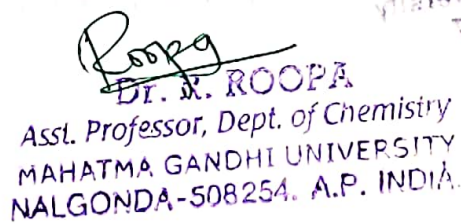 Roopa
Dr. M. ROOPA
Asst. Professor, Dept. of Chemistry
MAHATMA GANDHI UNIVERSITY
NALGONDA-508254. A.P. INDIA.